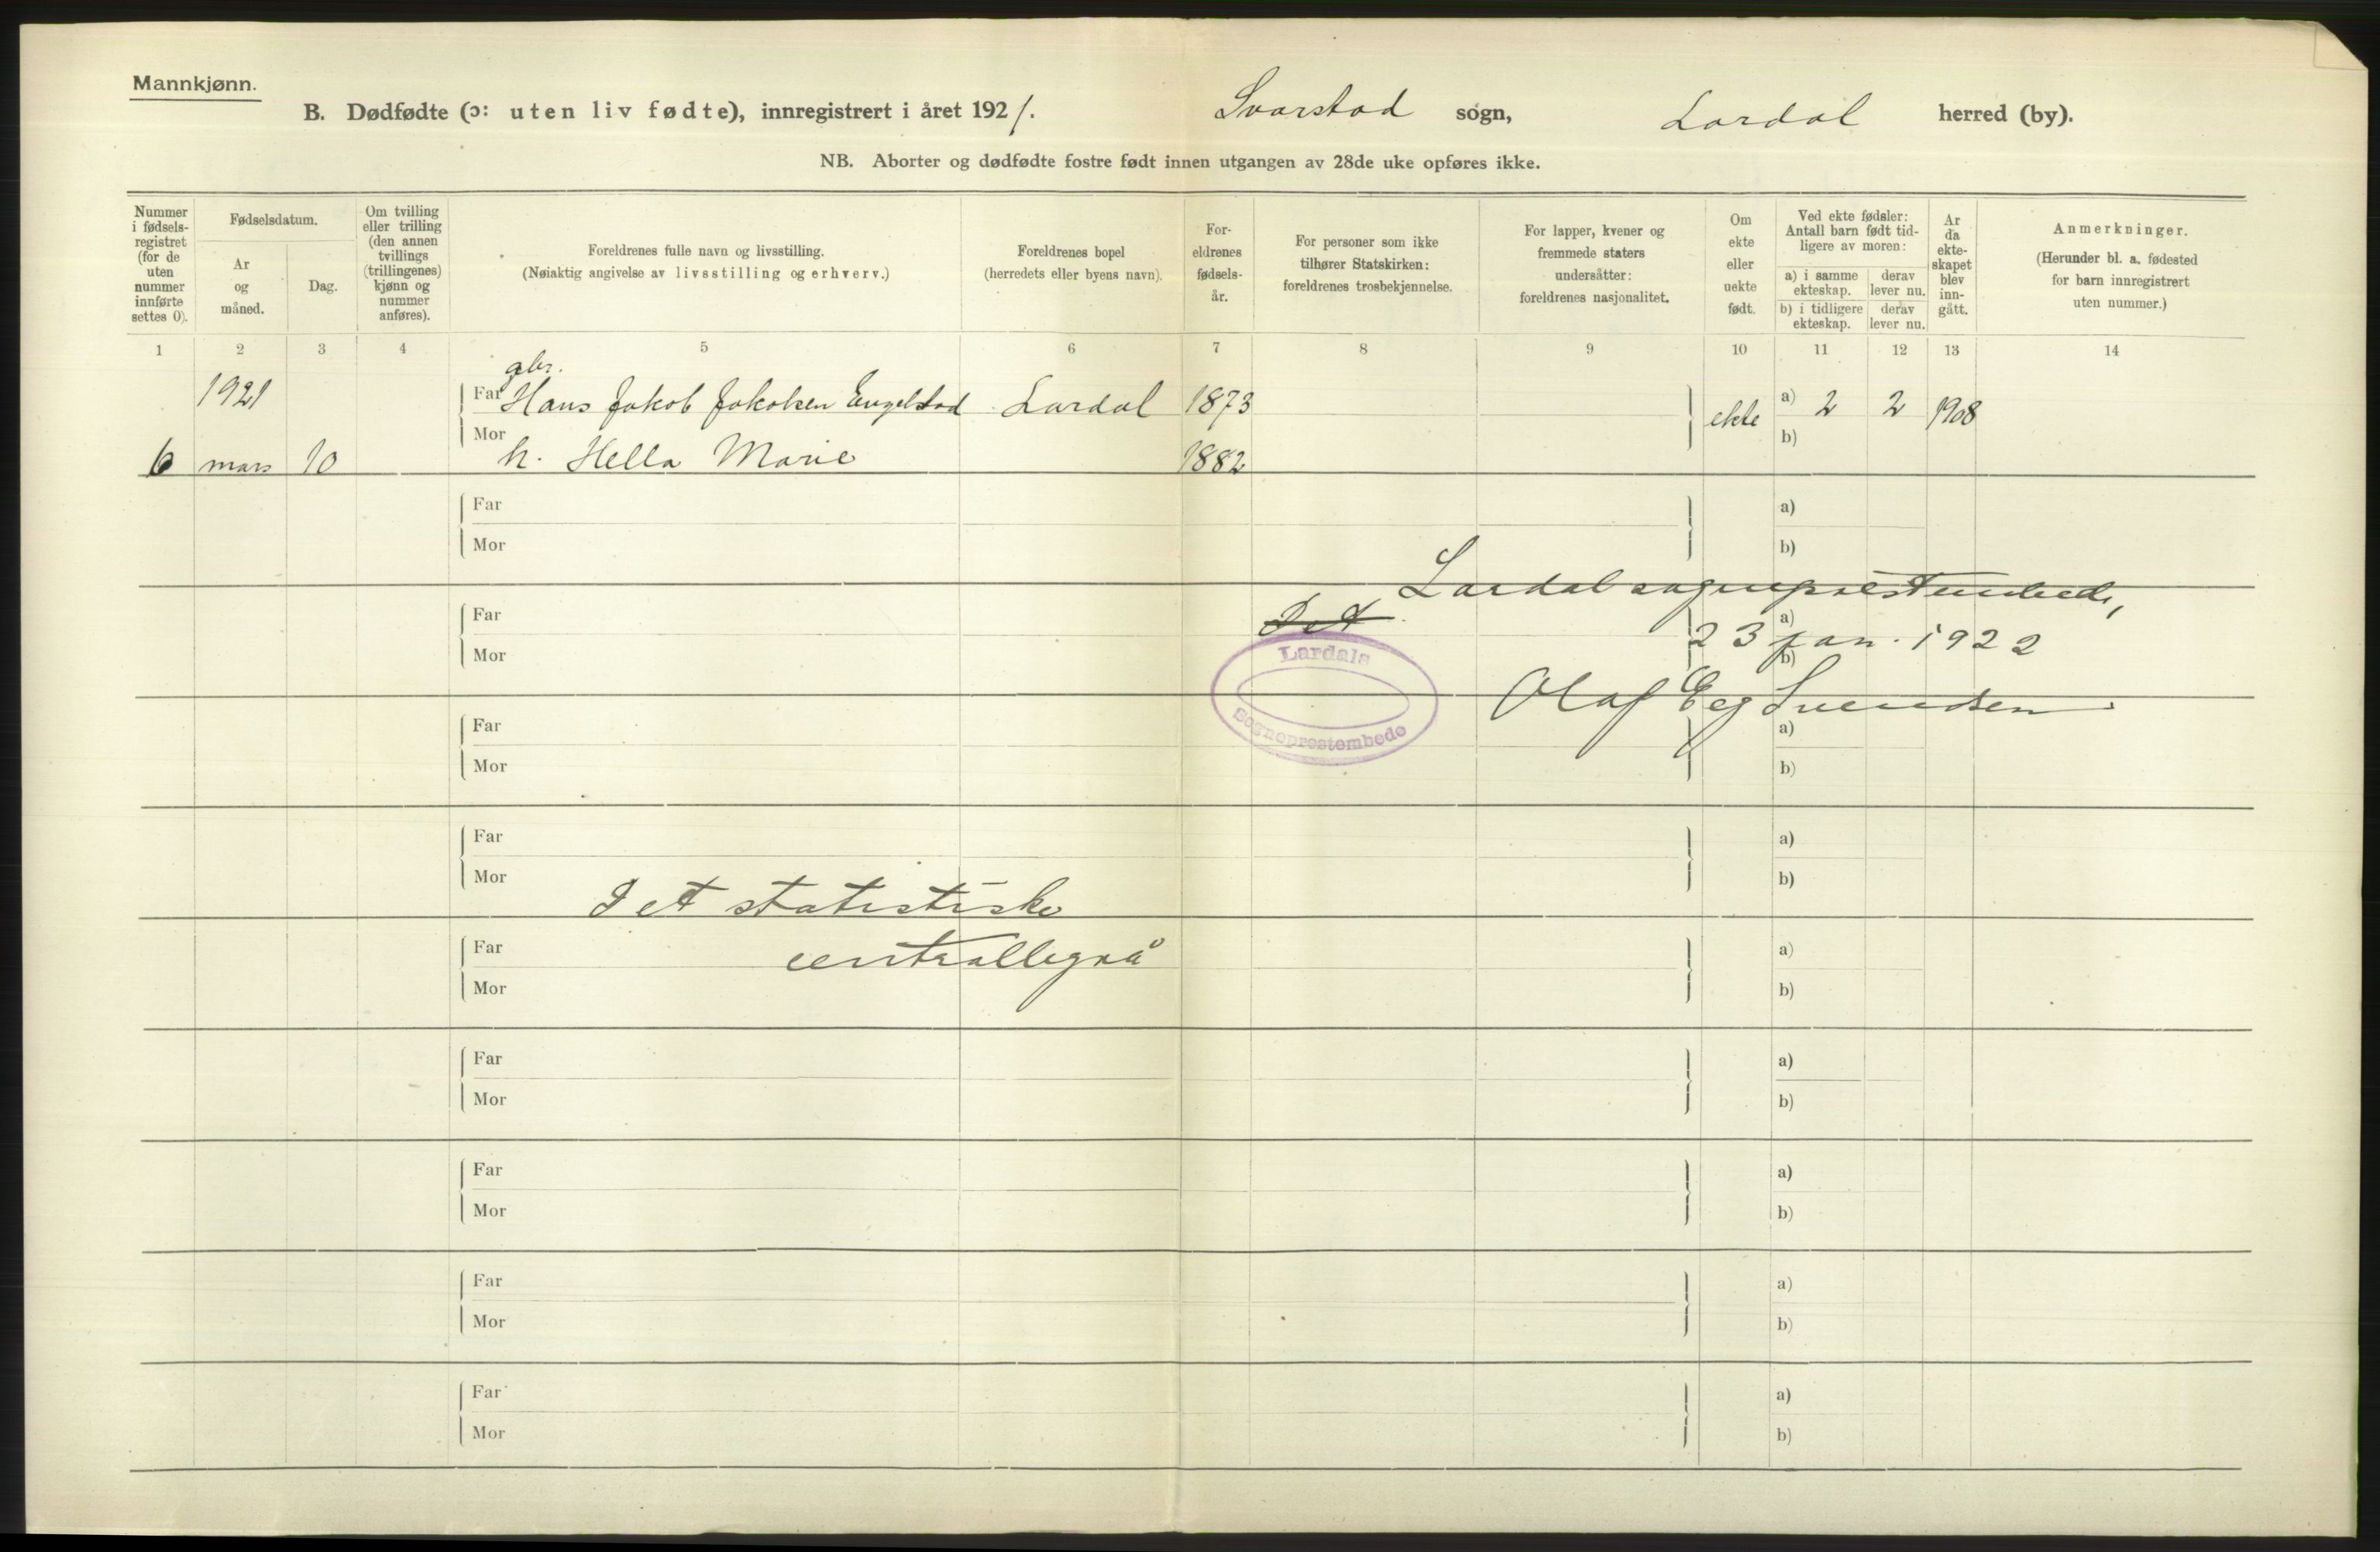 Mannkjønn.
B. Dødfødte (ɔ: uten liv fødte), innregistrert i året 1921. Svarstad sogn, Lardal herred (by).
NB. Aborter og dødfødte fostre født innen utgangen av 28de uke opføres ikke.
Nummer i fødsels-registret (for de uten nummer innførte settes 0).
Fødselsdatum.
Ar og måned.
Dag.
Om tvilling eller trilling (den annen tvillings (trillingenes) kjønn og nummer anføres).
Foreldrenes fulle navn og livsstilling.
(Nøiaktig angivelse av livsstilling og erhverv.)
Foreldrenes bopel
(herredets eller byens navn).
For-eldrenes fødsels-år.
For personer som ikke tilhører Statskirken: foreldrenes trosbekjennelse.
For lapper, kvener og fremmede staters undersåtter: foreldrenes nasjonalitet.
Om ekte eller uekte født.
Ved ekte fødsler: Antall barn født tid-ligere av moren:
a) i samme ekteskap.
derav lever nu.
b) i tidligere ekteskap.
derav lever nu.
Ar da ekte-skapet blev inn-gått.
Anmerkninger.
(Herunder bl. a. fødested for barn innregistrert uten nummer.)
1 2 3 4 5 6 7 8 9 10 11 12 13 14
gbr.
1921 Far Hans Jakob Jakobsen Engelstad Lardal 1873 ekte a) 2 2 1908
6 mars 10 Mor h. Hella Marie 1882 b)
Far a)
Mor b)
Lardal sogneprestembede,
Det
Far a)
23 jan. 1922
Mor b)
Lardals
Sogneprestembede
Olaf Eeg Svendsen
Far a)
Mor b)
Far a)
Mor b)
Det statistiske
centralbyrå
Far a)
Mor b)
Far a)
Mor b)
Far a)
Mor b)
Far a)
Mor b)
Far a)
Mor b)